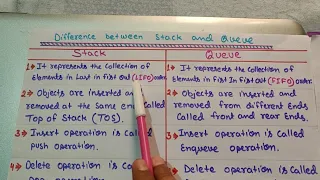 Difference between Stack and Queue
Stack
Queue
1→ It represents the collection of
elements in Last in first out (LIFO) order.
2→ Objects are inserted and
removed at the same end called
Top of Stack (TOS).
3→ Insert operation is called
push operation.
4→ Delete operation is called
1→ It represents the collection of
Elements in First In first out (FIFO) order.
2→ Objects are inserted and
removed from different Ends
Called front and rear Ends.
3→ Insert operation is Called
Enqueue operation.
4→ Delete operation is Called